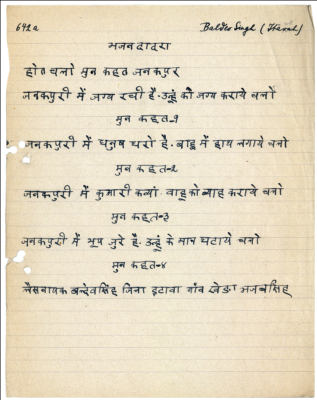 642a
Baldev Singh (Haral)
भजन दादरा
होत चलो मुन कहत जनकपुर
जनकपुरी में जग्य रची है. उन्हूं की जग्य कराये चलो
मुन कहत-१
जनकपुरी में धनुष धरो है. बाहू में हाथ लगाये चलो
मुन कहत-२
जनकपुरी में कुमारी कन्यां. वाहू को व्याह कराये चलो
मुन कहत-३
जनकपुरी में भूप जुरे है. उन्हूं के मान घटाये चलो
मुन कहत-४
बल्देवसिंह जिला इटावा गांव खेडा अजबसिंह